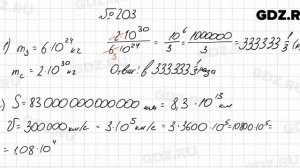 GDZ.RU
№203
1) m₃ = 6·10²⁴ кг  2·10³⁰/6·10²⁴ = 10⁶/3 = 1000000/3 = 333333 1/3 (
3
m_c = 2·10³⁰ кг  Ответ: в 333333 1/3 раза
) S = 83 000 000 000 000 км = 8,3·10¹³ км.
V = 300000 км/с = 3·10⁵ км/с = 3·3600·10⁵ = 10800·10⁵ =
= 1,08·10⁴
GDZ.RU